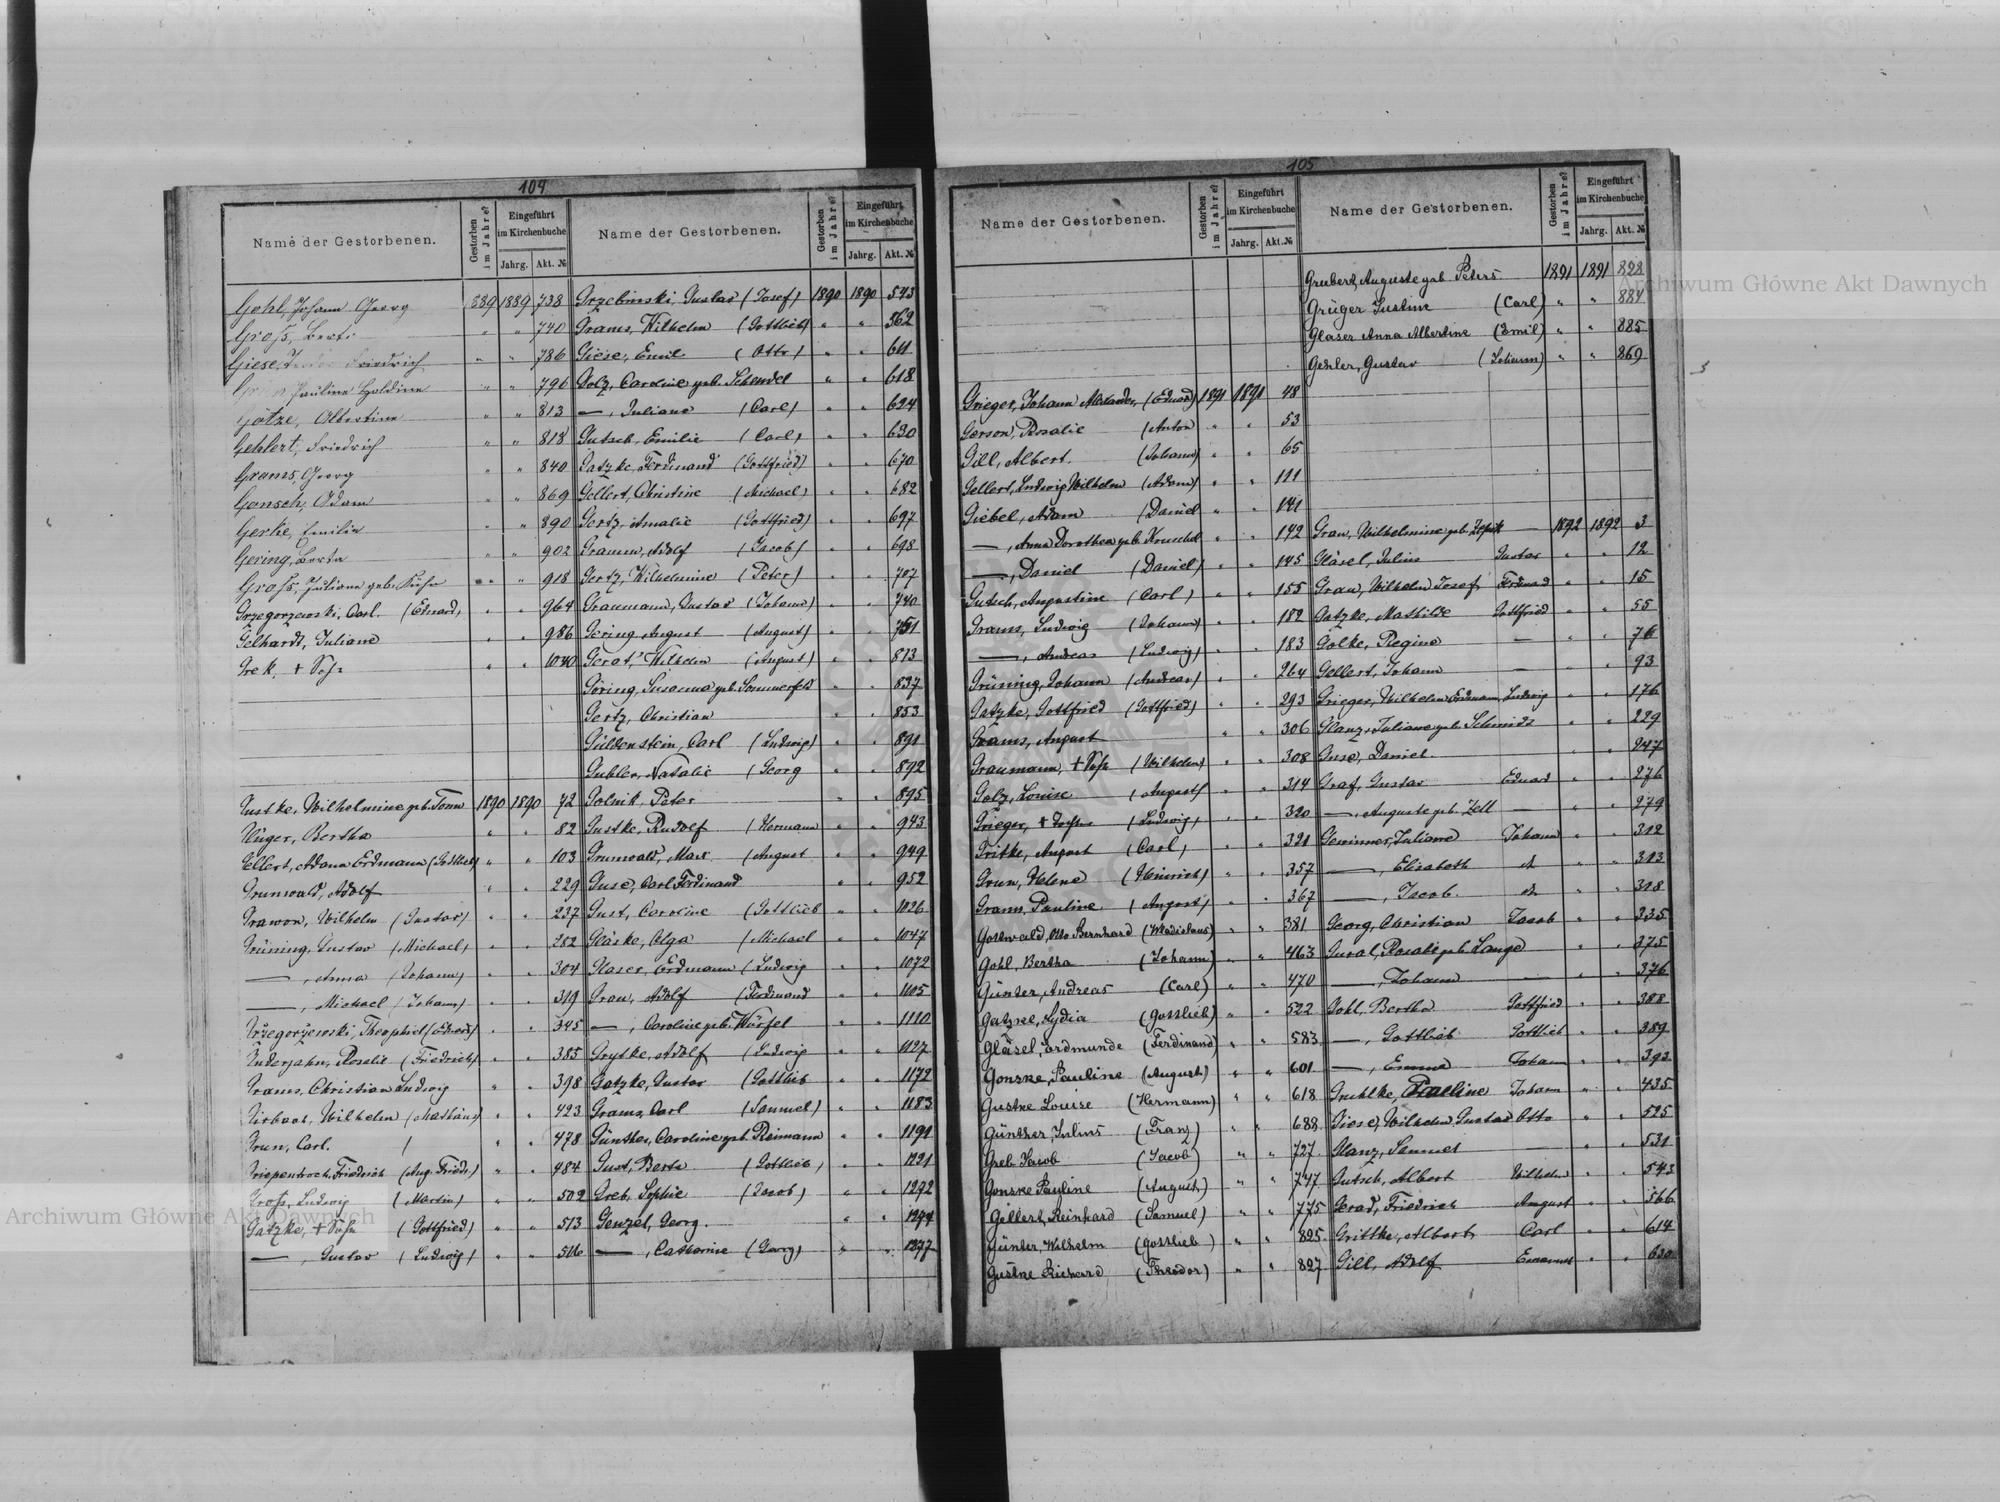 104
Name der Gestorbenen. Gestorben im Jahre? Eingeführt im Kirchenbuche Jahrg. Akt. №
Gohl, Johann Georg 1889 1889 738
Groß, Berta " " 740
Giese, Friedrich " " 786
Pauline Haldine " " 796
Götze, Albertine " " 813
Gehlert, Friedrich " " 818
Grams, Georg " " 840
Gonsch, Adam " " 869
Gerke, Emilie " " 890
Gering, Berta " " 902
Groß, Juliane geb. " " 918
Grzegorzewski, Carl. (Eduard) " " 964
Gelhardt, Juliane " " 986
Grek, + Sohn " " 1040
Gustke, Wilhelmine geb. Tonn 1890 1890 72
Krüger, Bertha " " 82
Gellert, Adam Erdmann (Gottlieb) " " 103
Grunwald, Adolf " " 229
Grawon, Wilhelm (Gustav) " " 237
Grüning, Gustav (Michael) " " 282
—, Anna (Johann) " " 304
—, Michael (Johann) " " 319
Grzegorzewski, Theophiel (Eduard) " " 345
Guderjahn, Rosalie (Friedrich) " " 385
Grams, Christian Ludwig " " 398
Wilhelm (Mathias) " " 423
Grun, Carl. " " 478
Griepentroch, Friedrich (Aug. Friedr.) " " 484
Groß, Ludwig (Martin) " " 502
Gatzke, + Sohn (Gottfried) " " 513
—, Gustav (Ludwig) " " 516
Name der Gestorbenen. Gestorben im Jahre? Eingeführt im Kirchenbuche Jahrg. Akt. №
Grzebinski, Gustav (Josef) 1890 1890 543
Grams, Wilhelm (Gottlieb) " " 562
Giese, Emil (Otto) " " 611
Golz, Caroline geb. Schendel " " 618
—, Juliane (Carl) " " 624
Gutsch, Emilie (Carl) " " 630
Gatzke, Ferdinand (Gottfried) " " 670
Gellert, Christine (Michael) " " 682
Gertz, Amalie (Gottfried) " " 697
Gramm, Adolf (Jacob) " " 698
Gertz, Wilhelmine (Peter) " " 707
Graumann, Gustav (Johann) " " 740
Gering, August (August) " " 751
Gerat, Wilhelm (August) " " 813
Göring, Susanna geb. Sommerfeld " " 837
Gertz, Christian " " 853
Güldenstein, Carl (Ludwig) " " 891
Gubler, Natalie (Georg " " 892
Golnik, Peter " " 895
Gustke, Rudolf (Hermann " " 943
Grunwald, Max (August " " 949
Guse, Carl Ferdinand " " 952
Gust, Caroline (Gottlieb " " 1026
Gläske, Olga (Michael " " 1047
Glaser, Erdmann (Ludwig " " 1072
Grau, Adolf (Ferdinand " " 1105
—, Caroline geb. Würfel " " 1110
Grytke, Adolf (Ludwig " " 1127
Gatzke, Gustav (Gottlieb " " 1172
Grams, Carl (Samuel) " " 1183
Günther, Caroline geb. Reimann " " 1191
Gust, Berta (Gottlieb) " " 1221
Greb, Sophie (Jacob) " " 1292
Genzel, Georg. " " 1294
—, Catharine (Georg) " " 1377
105
Name der Gestorbenen. Gestorben im Jahre? Eingeführt im Kirchenbuche Jahrg. Akt. №
Grieger, Johann Alexander, (Eduard) 1891 1891 48
Gerson, Rosalie (Anton " " 53
Gill, Albert. (Johann) " " 65
Gellert, Ludwig Wilhelm (Adam) " " 111
Giebel, Adam (Daniel " " 141
—, Anna Dorothea geb. Kruschel " " 142
—, Daniel (Daniel) " " 145
Gutsch, Augustine (Carl) " " 155
Grams, Ludwig (Johann) " " 182
—, Andreas (Ludwig) " " 183
Grüning, Johann (Andreas) " " 264
Gatzke, Gottfried (Gottfried) " " 293
Grams, August " " 306
Graumann, + Sohn (Wilhelm) " " 308
Golz, Louise (August) " " 314
Grieger, + Tochter (Ludwig) " " 320
Gritke, August (Carl) " " 321
Grun, Helene (Heinrich) " " 357
Grams, Pauline (August) " " 367
Gottwald, Otto Bernhard (Wladislaus) " " 381
Gohl, Bertha (Johann) " " 463
Günter, Andreas (Carl) " " 470
Gatzke, Lydia (Gottlieb) " " 522
Gläsel, Erdmunde (Ferdinand) " " 583
Gonske, Pauline (August) " " 601
Gustke Louise (Hermann) " " 618
Günther, Julius (Franz) " " 688
Greb Jacob (Jacob) " " 727
Gonske Pauline (August) " " 747
Gellert, Reinhard (Samuel) " " 775
Günter, Wilhelm (Gottlieb) " " 825
Gustke Richard (Theodor) " " 827
Name der Gestorbenen. Gestorben im Jahre? Eingeführt im Kirchenbuche Jahrg. Akt. №
Grubert, Auguste geb. Peters 1891 1891 828
Grüger Justine (Carl) " " 884
Glaser Anna Albertine (Emil) " " 885
Geßler, Gustav (Johann) " " 869
Grau, Wilhelmine geb. — 1892 1892 3
Gläsel, Julius Gustav " " 12
Grau, Wilhelm Josef Ferdinand " " 15
Gatzke, Mathilde Gottfried " " 55
Golke, Regine — " " 76
Gellert, Johann — " " 93
Grieger, Wilhelm Erdmann, Ludwig " " 176
Glanz, Juliane geb. Schmidt " " 229
Guse, Daniel. " " 247
Graf, Gustav Eduard " " 276
—, Auguste geb. Zell — " " 279
Gewinner, Juliane Johann " " 312
—, Elisabeth d " " 313
—, Jacob. d " " 318
Georg, Christian Jacob " " 335
Gural, Rosalie geb. Lange " " 375
—, Johann — " " 376
Gohl, Bertha Gottfried " " 388
—, Gottlieb Gottlieb " " 389
—, Emma Johann " " 392
Gruhlke, Pauline Johann " " 435
Giese, Wilhelm Gustav Otto " " 525
Glanz, Samuel — " " 531
Gutsch, Albert Wilhelm " " 543
Gerad, Friedrich August " " 566
Grittke, Albert Carl " " 614
Gill, Adolf Emanuel " " 630
Archiwum Główne Akt Dawnych
Archiwum Główne Akt Dawnych